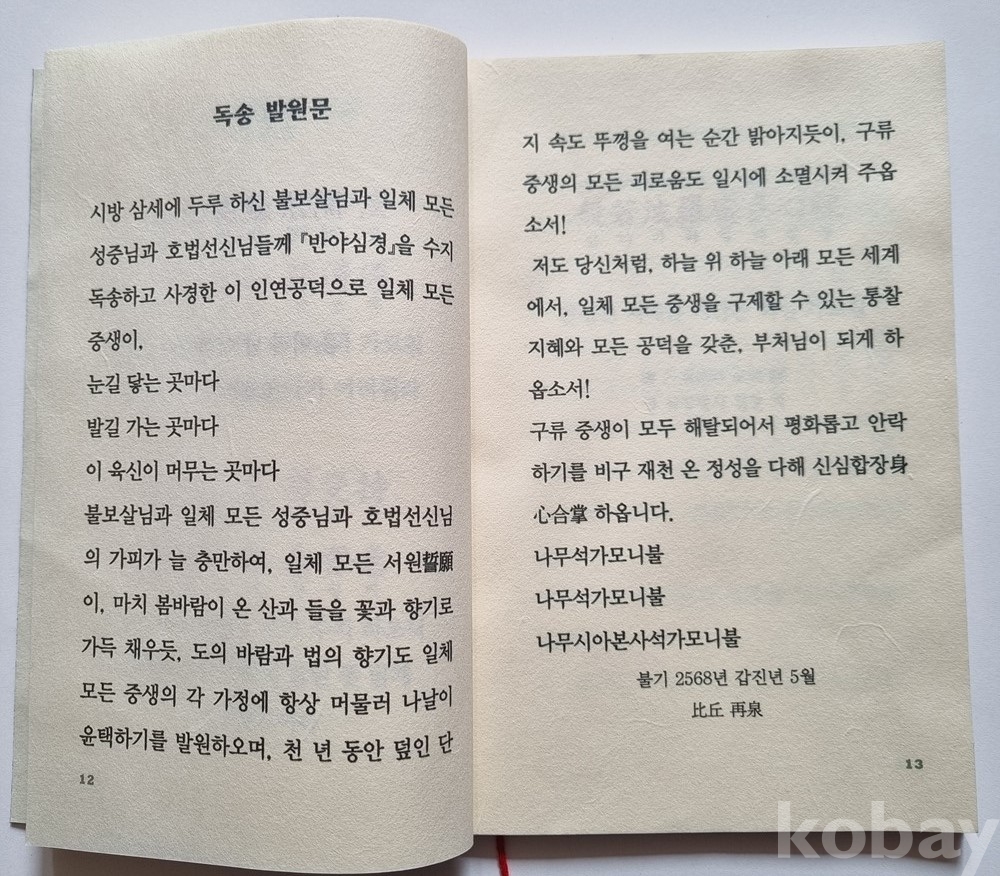 독송 발원문
시방 삼세에 두루 하신 불보살님과 일체 모든
성중님과 호법선신님들께 『반야심경』을 수지
독송하고 사경한 이 인연공덕으로 일체 모든
중생이,
눈길 닿는 곳마다
발길 가는 곳마다
이 육신이 머무는 곳마다
불보살님과 일체 모든 성중님과 호법선신님
의 가피가 늘 충만하여, 일체 모든 서원誓願
이, 마치 봄바람이 온 산과 들을 꽃과 향기로
가득 채우듯, 도의 바람과 법의 향기도 일체
모든 중생의 각 가정에 항상 머물러 나날이
윤택하기를 발원하오며, 천 년 동안 덮인 단
12
지 속도 뚜껑을 여는 순간 밝아지듯이, 구류
중생의 모든 괴로움도 일시에 소멸시켜 주옵
소서!
저도 당신처럼, 하늘 위 하늘 아래 모든 세계
에서, 일체 모든 중생을 구제할 수 있는 통찰
지혜와 모든 공덕을 갖춘, 부처님이 되게 하
옵소서!
구류 중생이 모두 해탈되어서 평화롭고 안락
하기를 비구 재천 온 정성을 다해 신심합장身
心合掌 하옵니다.
나무석가모니불
나무석가모니불
나무시아본사석가모니불
불기 2568년 갑진년 5월
比丘 再泉
13
kobay